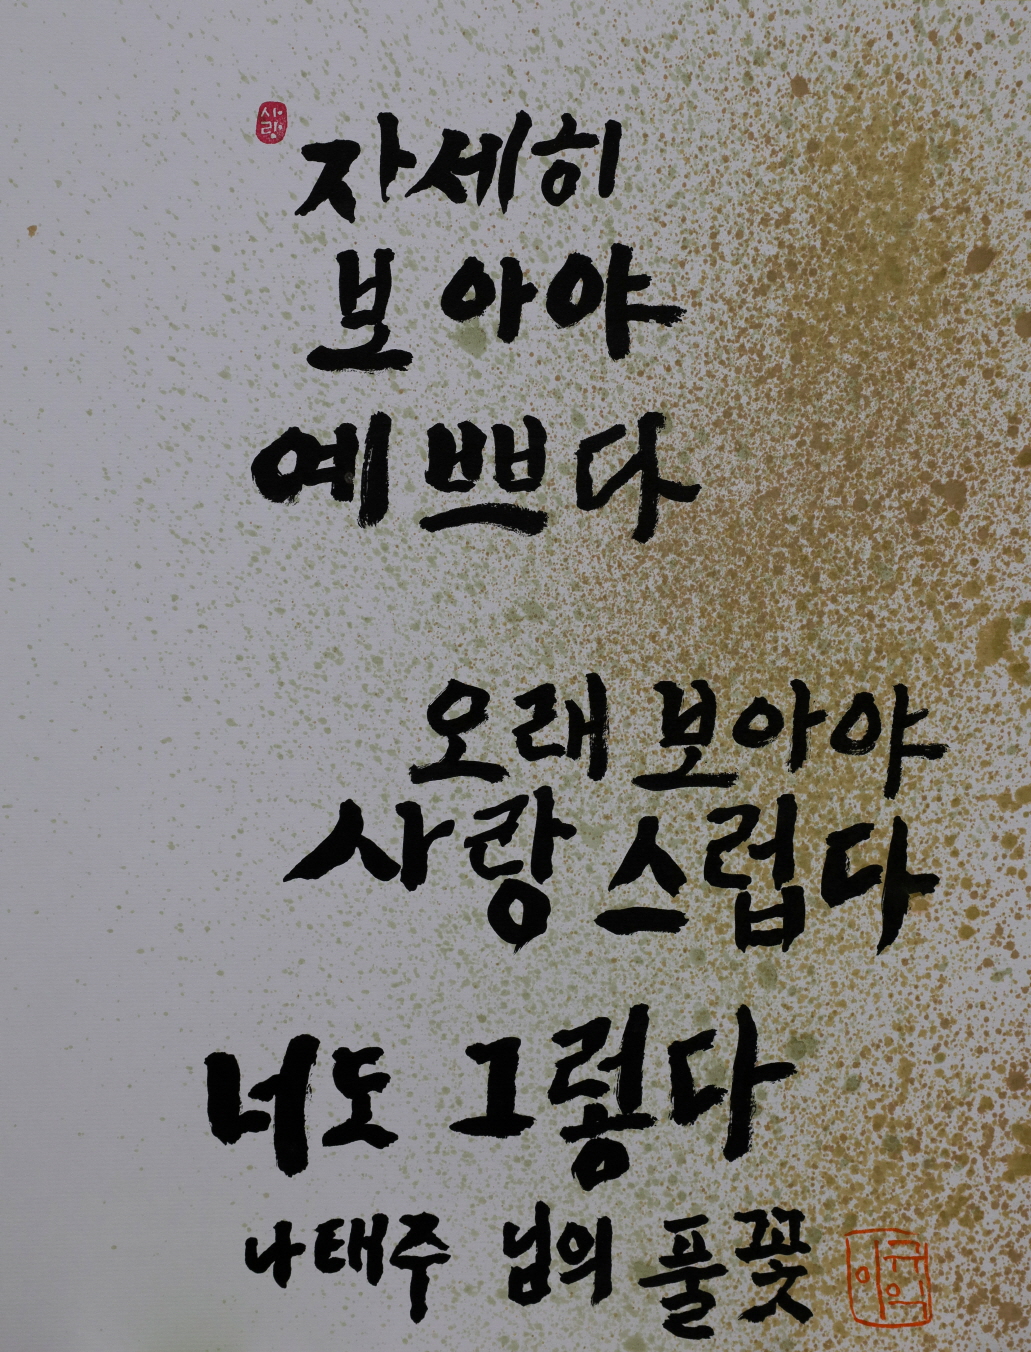 사랑
자세히
보아야
예쁘다
오래 보아야
사랑스럽다
너도 그렇다
나태주 님의 풀꽃